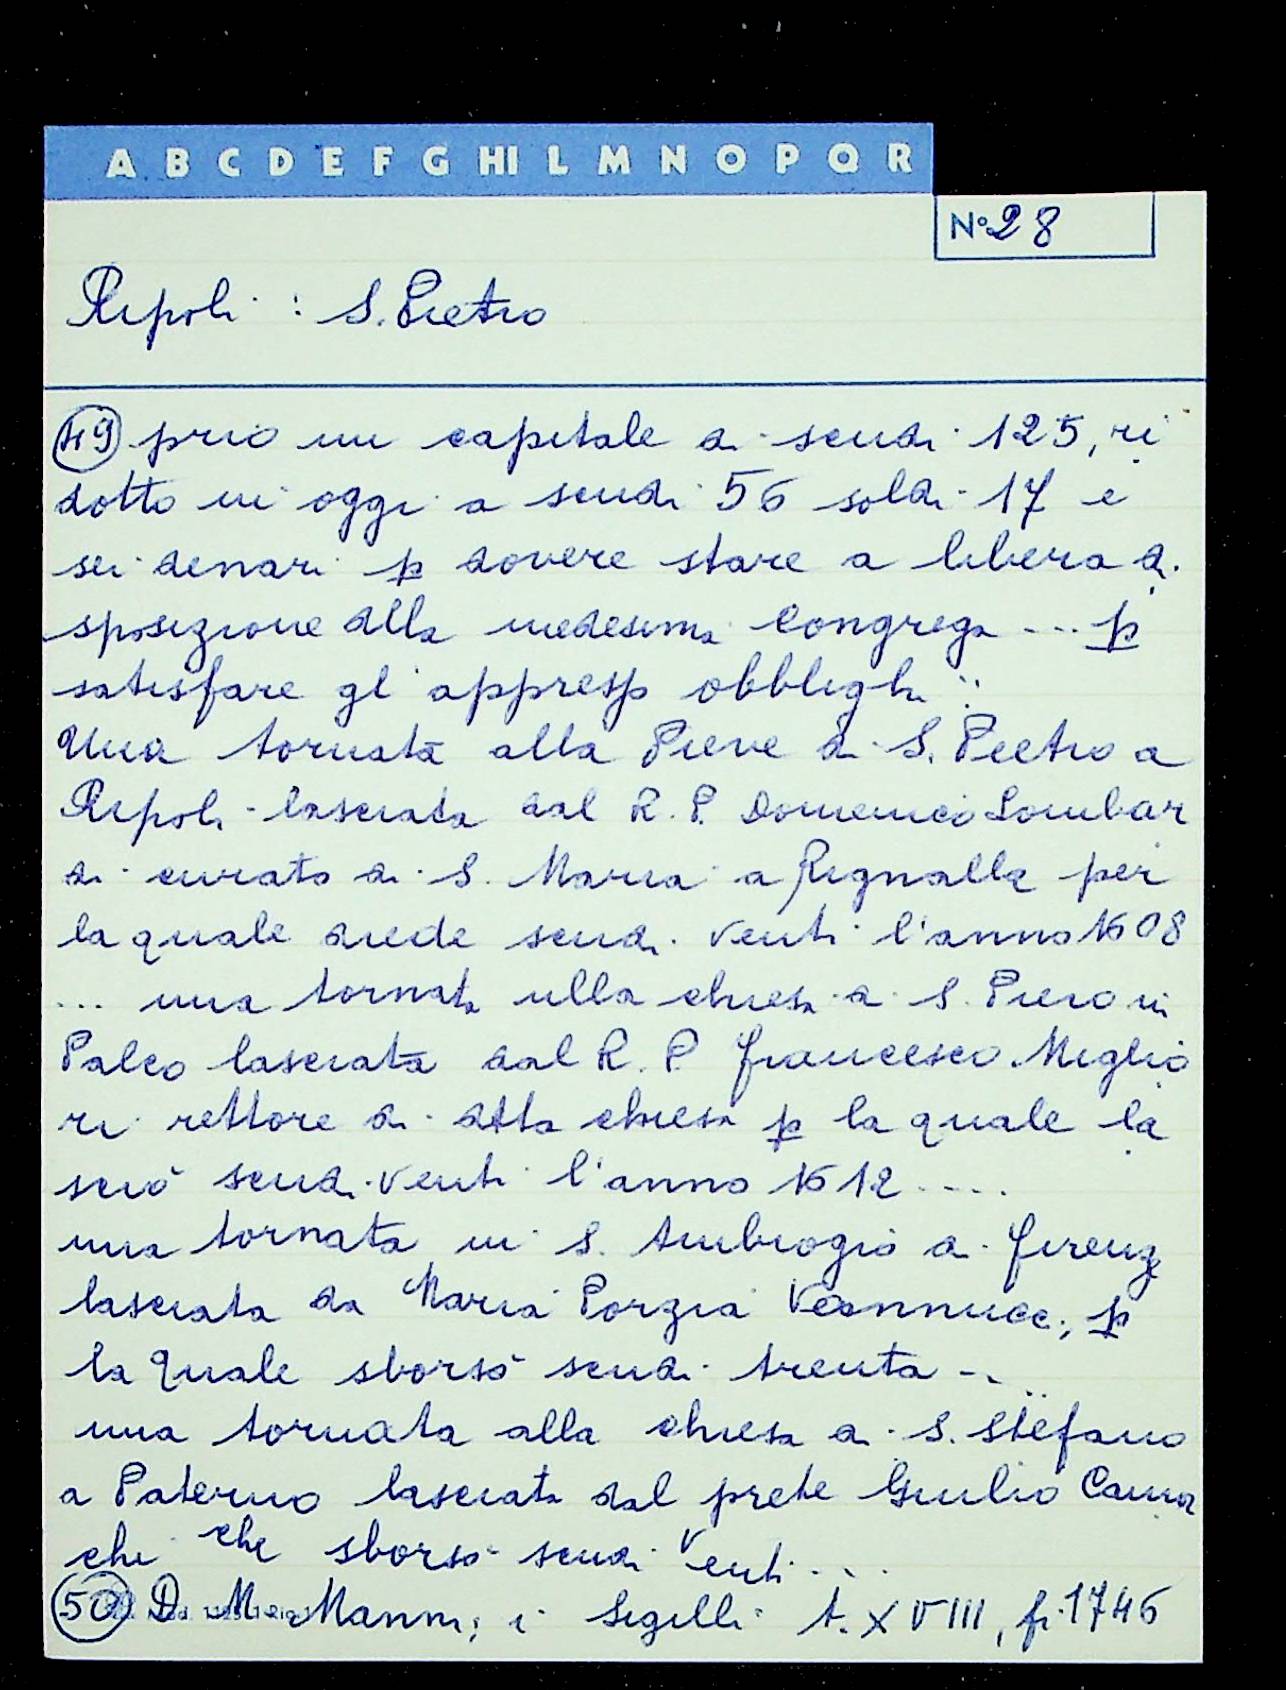 A B C D E F G HI L M N O P Q R
N° 28
Ripoli : S. Pietro
49 prio un capitale di scudi 125, ri
dotto in oggi a scudi 56 soldi 17 e
sei denari p dovere stare a libera di
sposizione della medesima Congrega ... p
satisfare gl'appresso obblighi :
Una tornata alla Pieve di S. Pietro a
Ripoli lasciata dal R. P. Domenico Lombar
di curato di S. Maria a Rignalla per
la quale diede scudi venti l'anno 1608
... una tornata alla chiesa di S. Piero in
Palco lasciata dal R. P. Francesco Miglio
ri rettore di detta chiesa p la quale la
sciò scudi venti l'anno 1612 ....
una tornata in S. Ambrogio di Firenz
lasciata da Maria Porzia Vannucci, p
la quale sborsò scudi trenta ...
una tornata alla chiesa di S. Stefano
a Paterno lasciata dal prete Giulio
che sborsò scudi venti ...
50 D. M. Manni, i Sigilli t. XVIII, fi. 1746